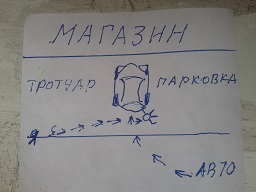 МАГАЗИН
ТРОТУАР ПАРКОВКА
АВТО